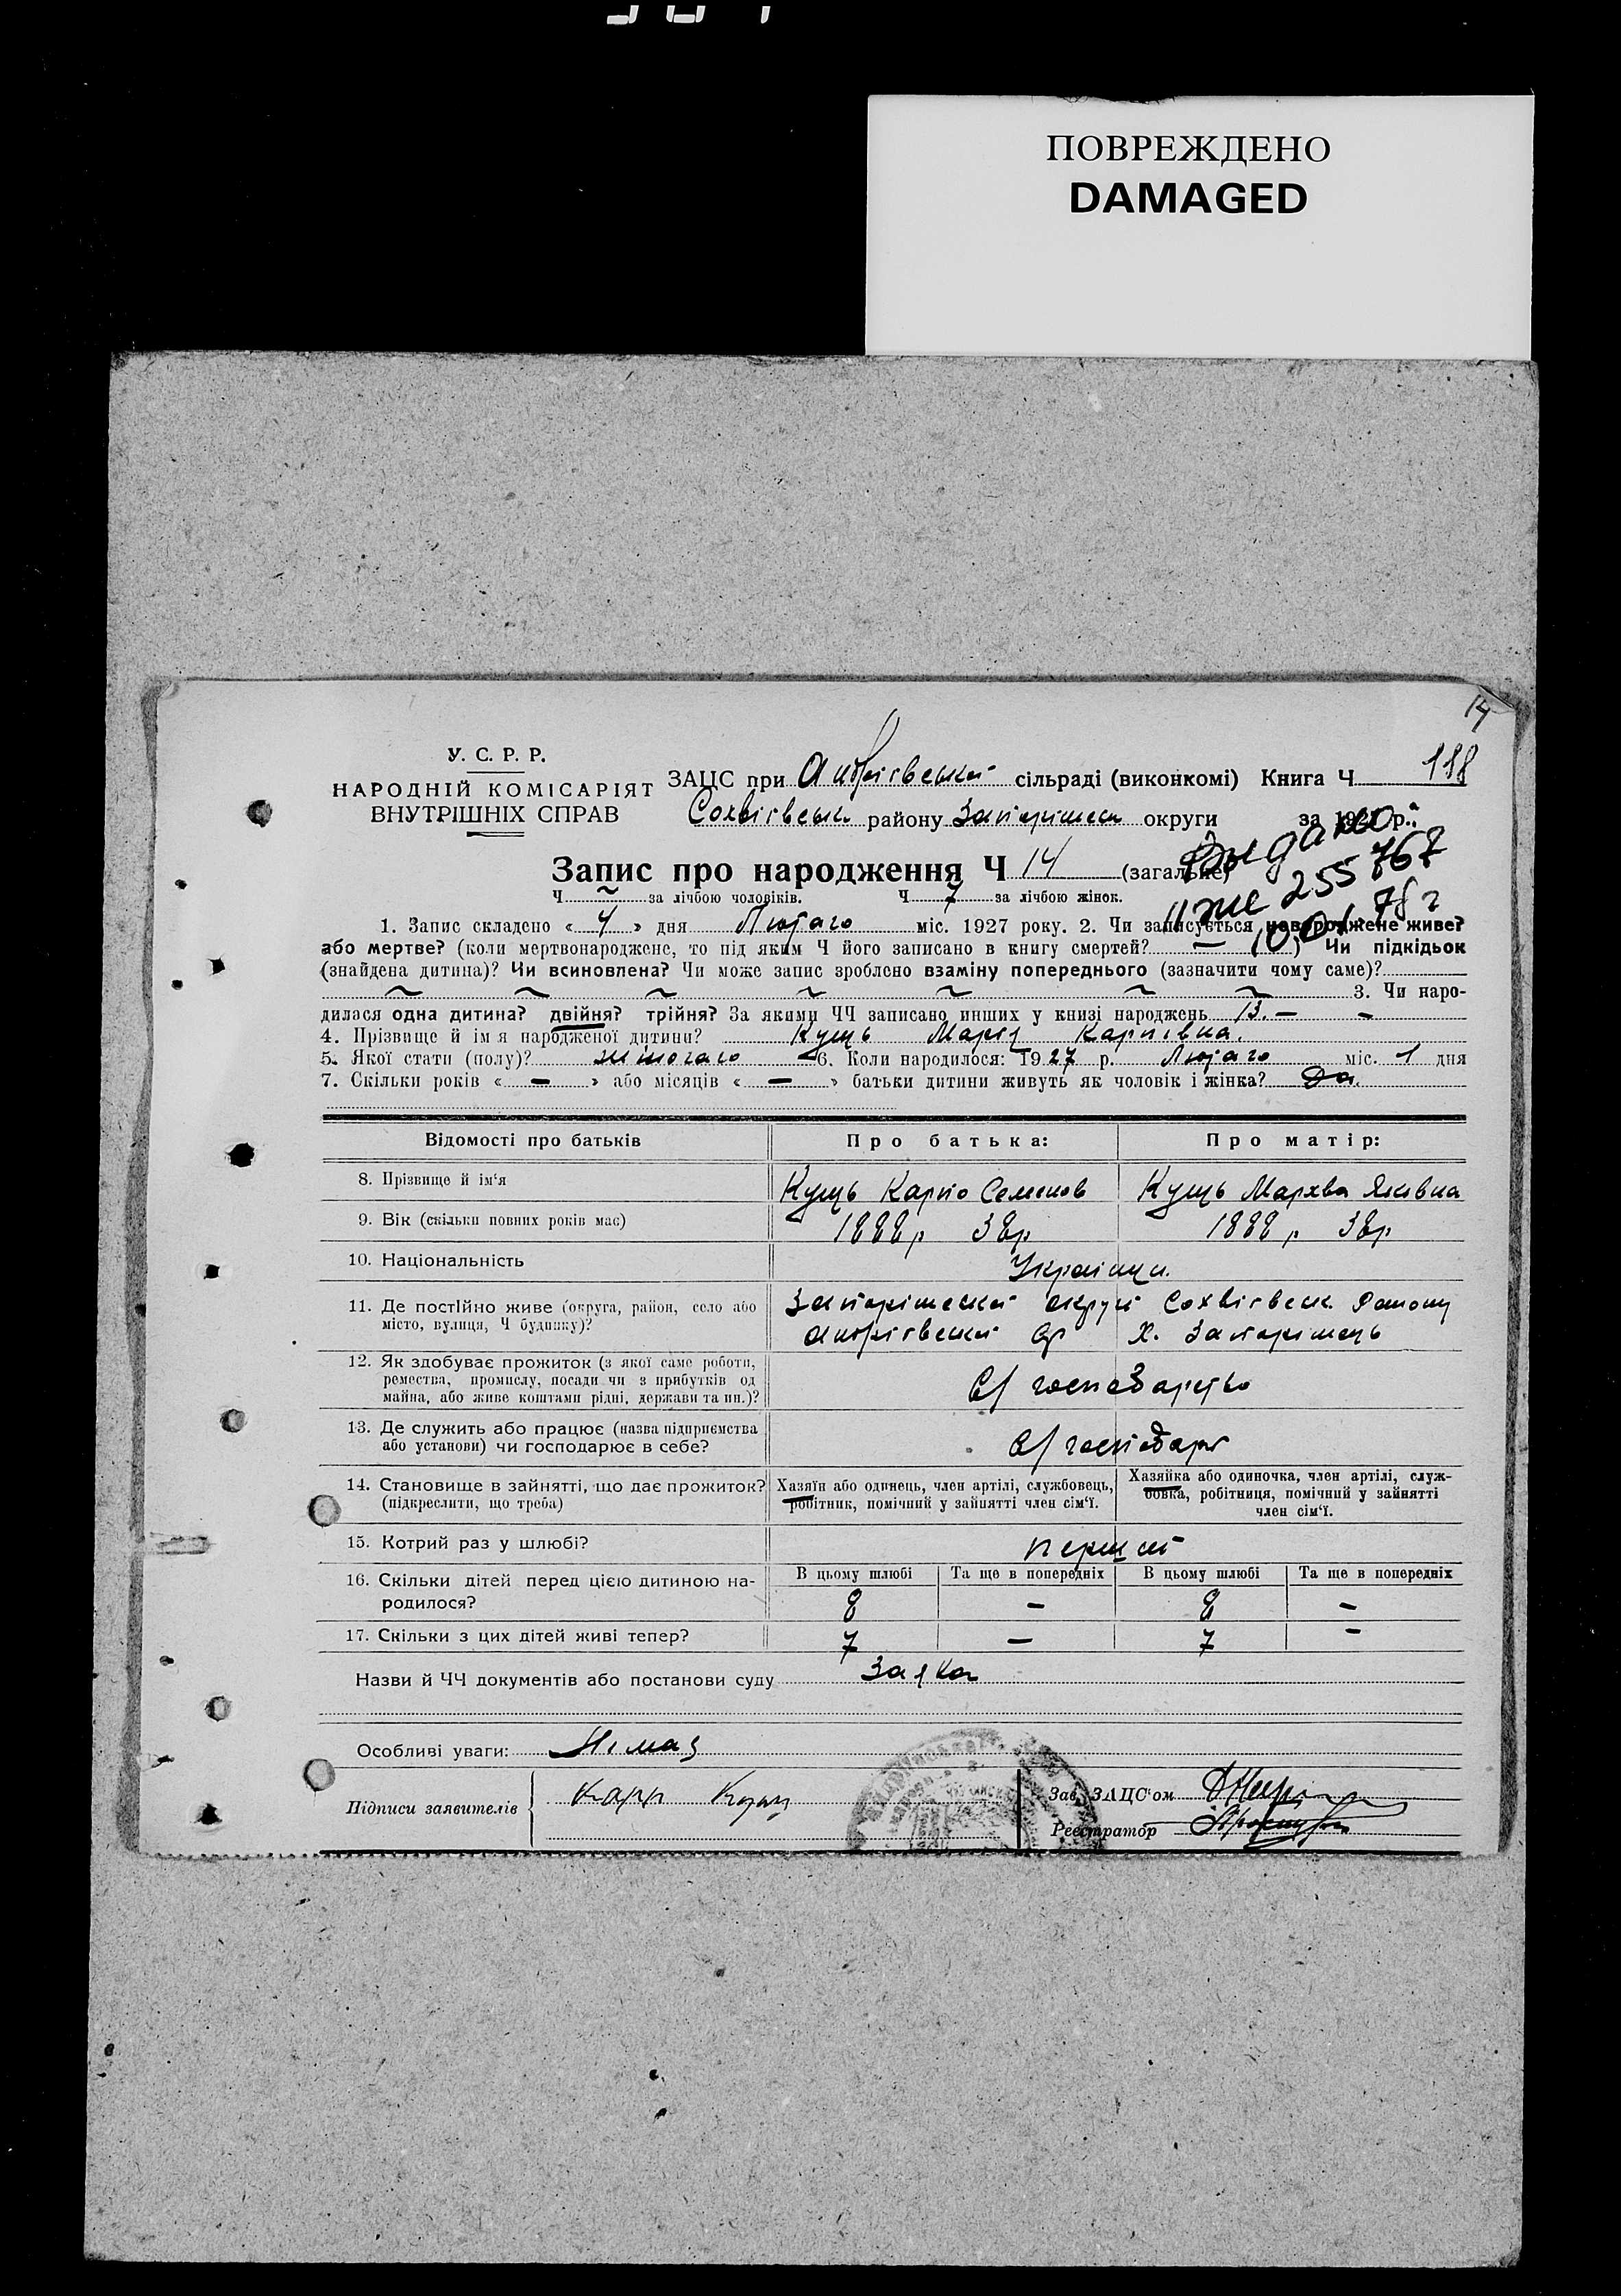 ПОВРЕЖДЕНО
DAMAGED
14
У. С. Р. Р.
НАРОДНІЙ КОМІСАРІЯТ
ВНУТРІШНІХ СПРАВ
ЗАЦС при сільраді (виконкомі) Книга Ч 188
району округи за р.
Видано
255767
Запис про народження Ч 14 (загальне)
Ч ~ за лічбою чоловіків. Ч 7 за лічбою жінок.
1. Запис складено « 4 » дня Лютаго міс. 1927 року. 2. Чи записується новороджене живе?
або мертве? (коли мертвонароджене, то під яким Ч його записано в книгу смертей? — ) Чи підкідьок
(знайдена дитина)? Чи всиновлена? Чи може запис зроблено взаміну попереднього (зазначити чому саме)?
~ ~ ~ ~ ~ ~ ~ 3. Чи наро-
дилася одна дитина? двійня? трійня? За якими ЧЧ записано инших у книзі народжень 13. — —
4. Прізвище й ім я народженої дитини? Кущь Марія Карпівна.
5. Якої стати (полу)? жіночаго 6. Коли народилося: 1927 р. Лютаго міс. 1 дня
7. Скільки років « — » або місяців « — » батьки дитини живуть як чоловік і жінка? Да.
Відомості про батьків Про батька: Про матір:
8. Прізвище й ім‘я Кущь Карпо Семенов Кущь Мархва Яківна
9. Вік (скільки повних років має) 1888 р 38 р 1888 р 38 р
10. Національність Українці.
11. Де постІйно живе (округа, район, село або
місто, вулиця, Ч будинку)?
12. Як здобуває прожиток (з якої саме роботи,
ремества, промислу, посади чи з прибутків од
майна, або живе коштами рідні, держави та ин.)? С/ господарство
13. Де служить або працює (назва підприємства
або установи) чи господарює в себе? С/ господарт
14. Становище в зайнятті, що дає прожиток?
(підкреслити, що треба)
Хазяїн або одинець, член артілі, службовець,
робітник, помічний у зайнятті член сім‘ї.
Хазяйка або одиночка, член артілі, служ-
бовка, робітниця, помічний у зайнятті
член сім‘ї.
15. Котрий раз у шлюбі? перший
16. Скільки дітей перед цією дитиною на-
родилося?
В цьому шлюбі Та ще в попередніх В цьому шлюбі Та ще в попередніх
8 — 8 —
17. Скільки з цих дітей живі тепер? 7 — 7 —
Назви й ЧЧ документів або постанови суду Заява
Особливі уваги: Немає
Підписи заявителів Карп Кущ
Зав. ЗАЦС‘ом
Реєстратор